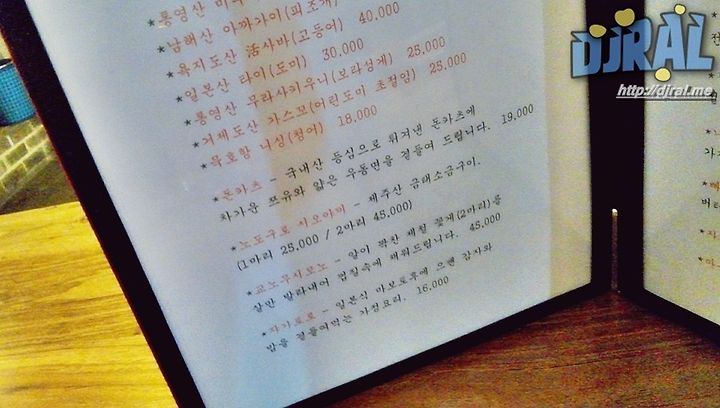 *통영산
*남해산 아까가이(피조개)
*욕지도산 活사바(고등어) 40,000
*일본산 타이(도미) 30,000
*통영산 무라사키우니(보라성게) 25,000
*거제도산 카스꼬(어린도미 초절임) 25,000
*묵호항 니싱(청어) 18,000
*돈카츠 - 국내산 등심으로 튀겨낸 돈카츠에
차가운 쯔유와 얇은 우동면을 곁들여 드립니다. 19,000
*노도구로 시오야끼 - 제주산 금태소금구이.
(1마리 25,000 / 2마리 45,000)
*코노무시모노 - 알이 꽉찬 제철 꽃게(2마리)를
살만 발라내어 껍질속에 채워드립니다. 45,000
*자가로로 - 일본식 마보토후에 으깬 감자와
밥을 곁들여먹는 가정요리. 16,000
DJRAL
http://djral.me